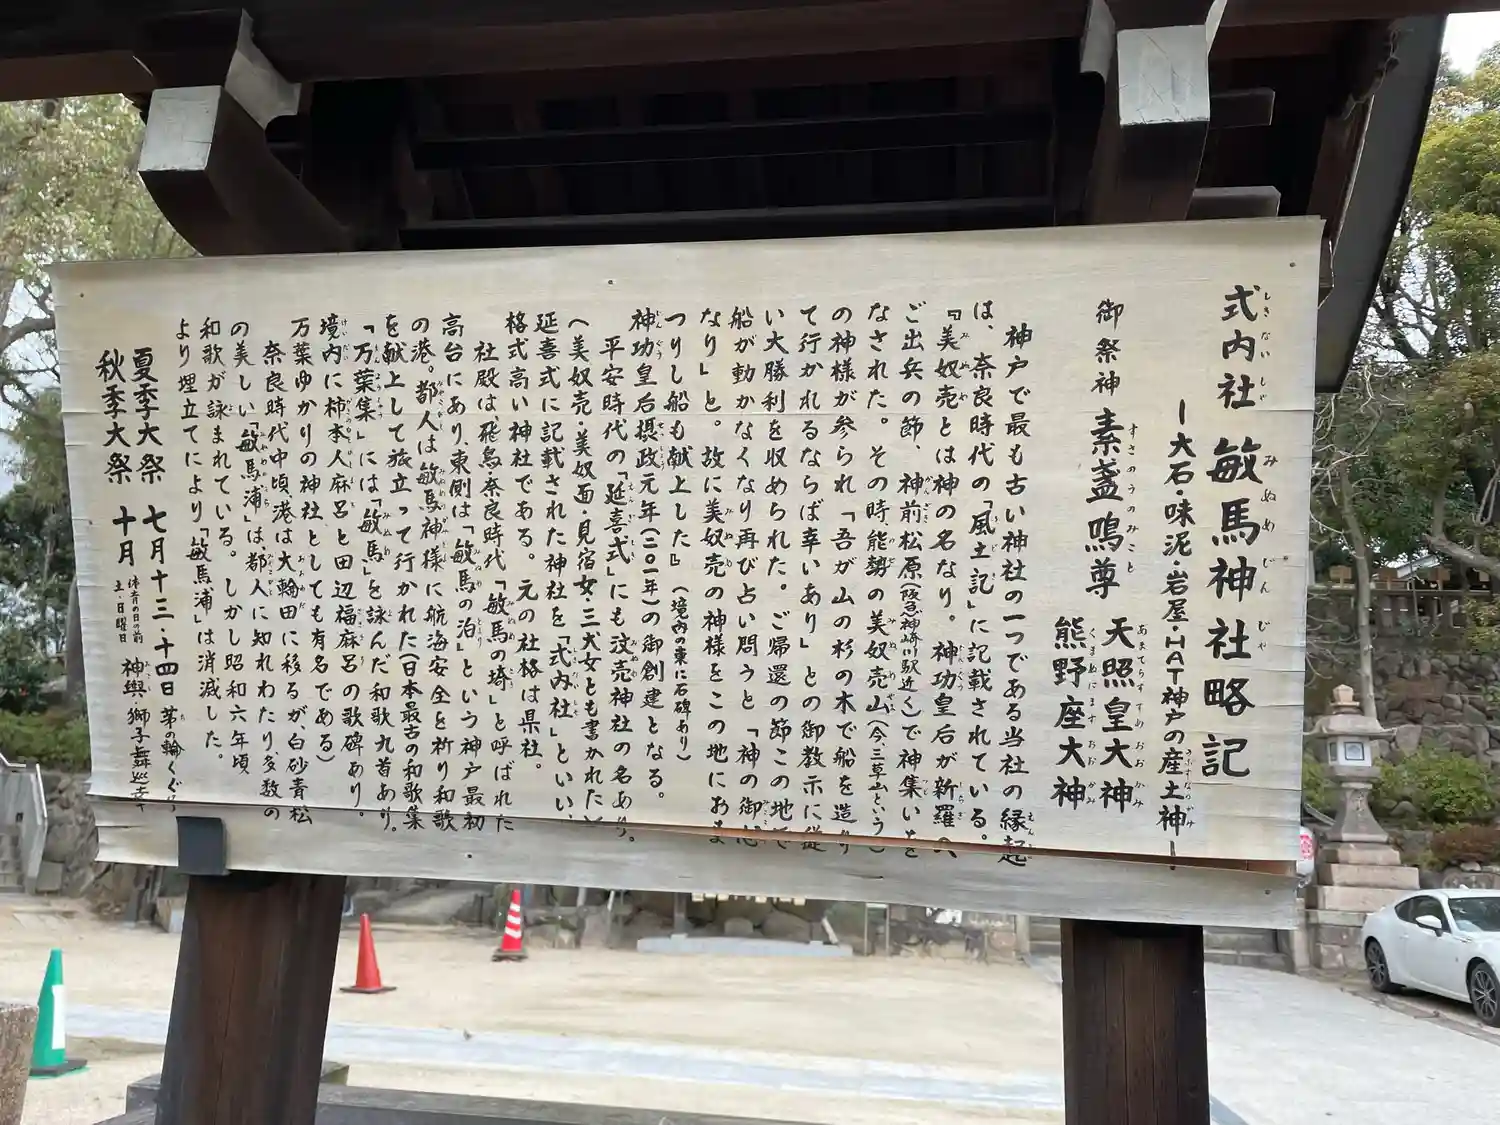 式内社 敏馬神社略記
―大石・味泥・岩屋・HAT神戸の産土神―
御祭神 素盞鳴尊 天照皇大神
熊野座大神
神戸で最も古い神社の一つである当社の縁起
は、奈良時代の「風土記」に記載されている。
『美奴売とは神の名なり。神功皇后が新羅へ
ご出兵の節、神前松原(阪急神崎川駅近く)で神集いを
なされた。その時、能勢の美奴売山(今、三草山という)
の神様が参られ「吾が山の杉の木で船を造り
て行かれるならば幸いあり」との御教示に従
い大勝利を収められた。ご帰還の節この地で
船が動かなくなり再び占い問うと「神の御心
なり」と。故に美奴売の神様をこの地におま
つりし船も献上した』(境内の東に石碑あり)
神功皇后摂政元年(二〇一年)の御創建となる。
平安時代の「延喜式」にも汶売神社の名あり。
(美奴売・美奴面・見宿女・三犬女とも書かれた)
延喜式に記載された神社を「式内社」といい、
格式高い神社である。元の社格は県社。
社殿は、飛鳥奈良時代「敏馬の埼」と呼ばれた
高台にあり、東側は「敏馬の泊」という神戸最初
の港。都人は敏馬神様に航海安全を祈り和歌
を献上して旅立って行かれた(日本最古の和歌集
「万葉集」には「敏馬」を詠んだ和歌九首あり。
境内に柿本人麻呂と田辺福麻呂の歌碑あり。
万葉ゆかりの神社としても有名である)
奈良時代中頃港は大輪田に移るが、白砂青松
の美しい「敏馬浦」は都人に知れわたり、多数の
和歌が詠まれている。しかし昭和六年頃
より埋立てにより「敏馬浦」は消滅した。
夏季大祭 七月十三・十四日 茅の輪くぐり
秋季大祭 十月 体育の日の前土・日曜日 神輿・獅子舞巡幸